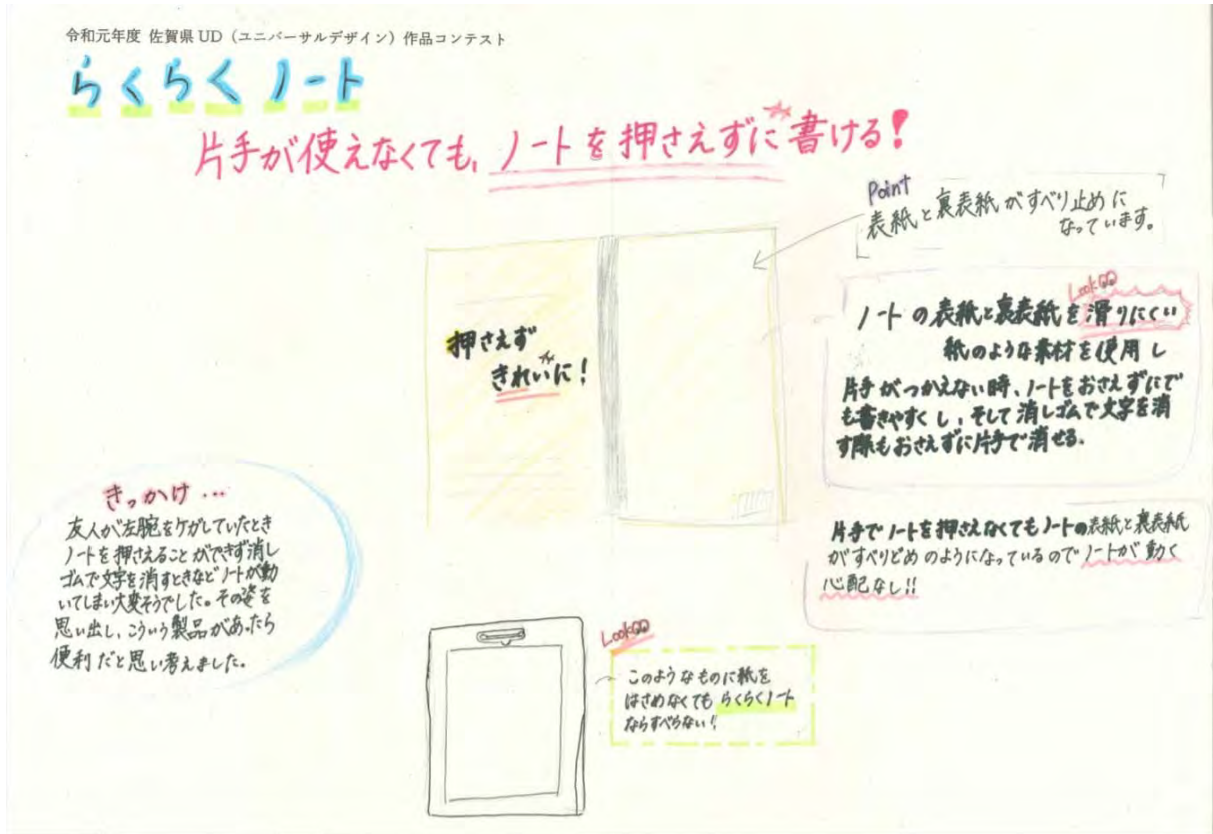 令和元年度 佐賀県 UD（ユニバーサルデザイン）作品コンテスト
らくらくノート
片手が使えなくても、ノートを押さえずに書ける！
Point
表紙と裏表紙がすべり止めに
なっています。
Look
ノートの表紙と裏表紙を滑りにくい
紙のような素材を使用し
片手がつかえない時、ノートをおさえずにで
も書きやすくし、そして消しゴムで文字を消
す際もおさえずに片手で消せる。
押さえず
きれいに！
片手でノートを押さえなくてもノートの表紙と裏表紙
がすべりどめのようになっているのでノートが動く
心配なし!!
きっかけ…
友人が左腕をケガしていたとき
ノートを押さえることができず消し
ゴムで文字を消すときなどノートが動
いてしまい大変そうでした。その姿を
思い出し、こういう製品があったら
便利だと思い考えました。
Look
このようなものに紙を
はさめなくてもらくらくノート
ならすべらない!!